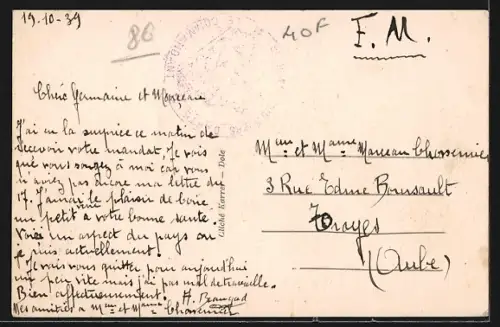 19.10-39
86
40F
F.M.
Chère Germaine et Marceau
J'ai eu la surprise ce matin de
recevoir votre mandat, Je vois
que vous songez à moi car vous
n'aviez pas encore ma lettre du
17. J'aurai le plaisir de boire
un petit à votre bonne santé
Voici un aspect du pays ou
je suis actuellement.
Je vais vous quitter pour aujourd'hui
un peu vite mais j'ai pas mal de travaille.
Bien affectueusement. A.
Mes amitiés à Mme et Mme
Cliché Karrer - Dole
et Marceau
3 Rue Edme Boursault
Troyes
(Aube)